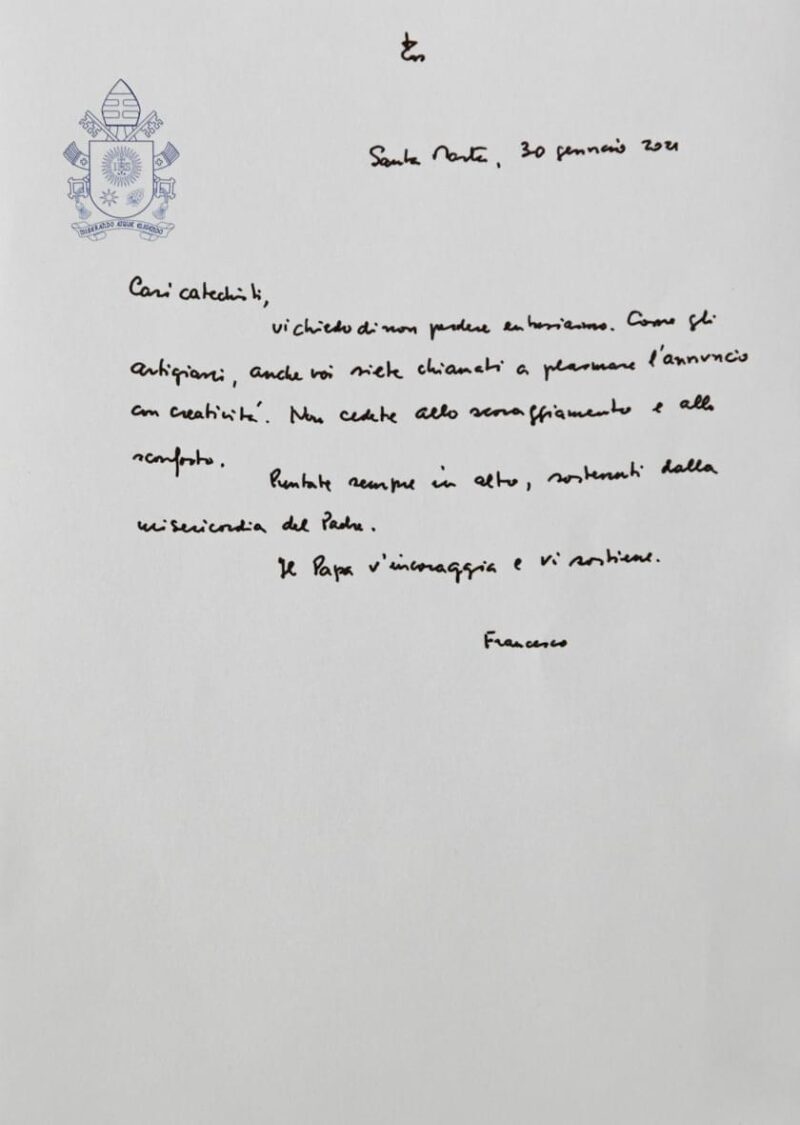 Santa Marta, 30 gennaio 2021
IHS
MISERANDO ATQUE ELIGENDO
Cari catechisti,
vi chiedo di non perdere entusiasmo. Come gli
artigiani, anche voi siete chiamati a plasmare l'annuncio
con creatività. Non cedete allo scoraggiamento e allo
sconforto.
Puntate sempre in alto, sostenuti dalla
misericordia del Padre.
Il Papa v'incoraggia e vi sostiene.
Francesco